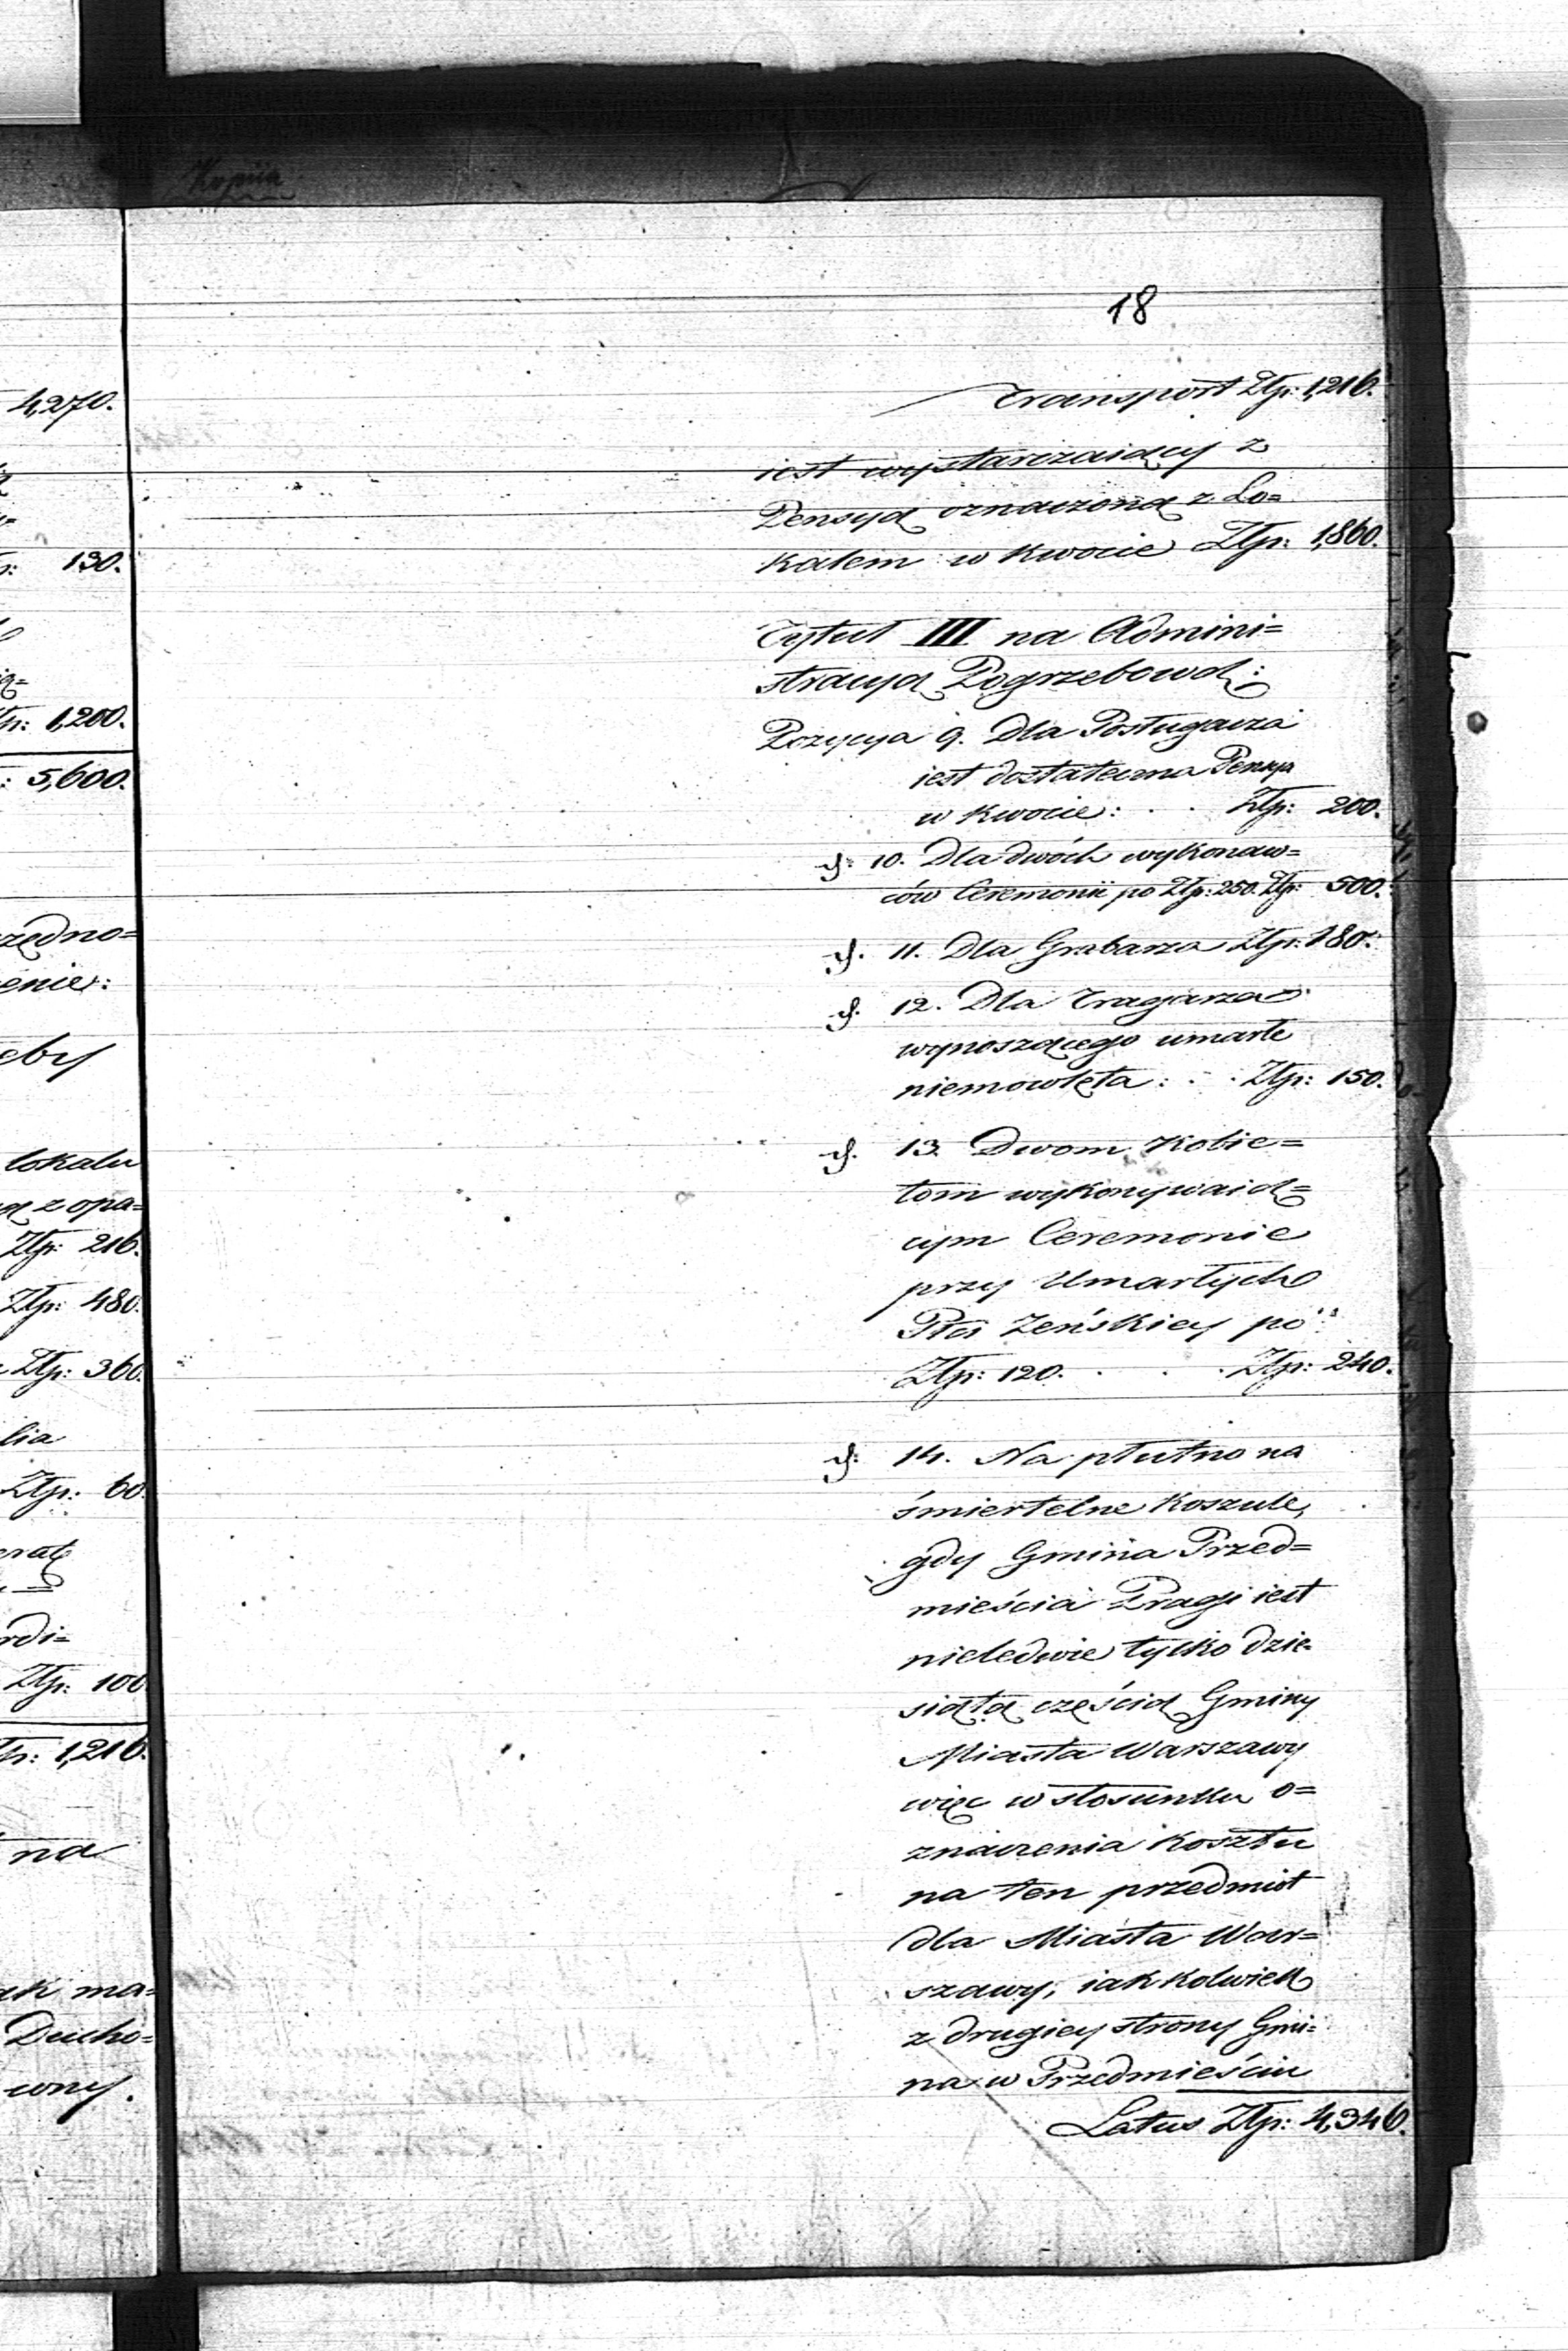 Kopiia
4,270.
130.
Ztp: 1,200.
: 5,600.
zędno=
enie:
eby
lokalu
z opa=
Ztp: 216.
Ztp: 480.
Ztp: 360.
lia
Ztp: 60.
erat
rdi=
Ztp: 100
1,216.
na
ak ma=
Ducho=
wny.
18
Transport Ztp: 1,216.
iest wystarczaiący z
Pensyą oznaczoną z Lo=
kalem w kwocie Ztp: 1,860.
Tytuł III na Admini=
stracyą Pogrzebową:
Pozycya 9. Dla Posługacza
iest dostateczna Pensya
w kwocie: . . Ztp: 200.
10. Dla dwóch wykonaw=
ców Ceremonii po Ztp: 250. Ztp: 500.
11. Dla Grabarza Ztp: 180.
12. Dla Tragarza
wynoszącego umarłe
niemowlęta: . . Ztp: 150.
13. Dwom Kobie=
tom wykonywaią=
cym Ceremonie
przy Umarłych
Płci Żeńskiey po
Ztp: 120. . . . Ztp: 240.
14. Na płutno na
śmiertelne koszule,
gdy Gmina Przed=
mieścia Pragi iest
nieledwie tylko dzie=
siątą częścią Gminy
Miasta Warszawy
więc w stosunku o=
znaczenia kosztu
na ten przedmiot
dla Miasta War=
szawy, iakkolwiek
z drugiey strony Gmi=
na w Przedmieściu
Latus Ztp: 4,346.